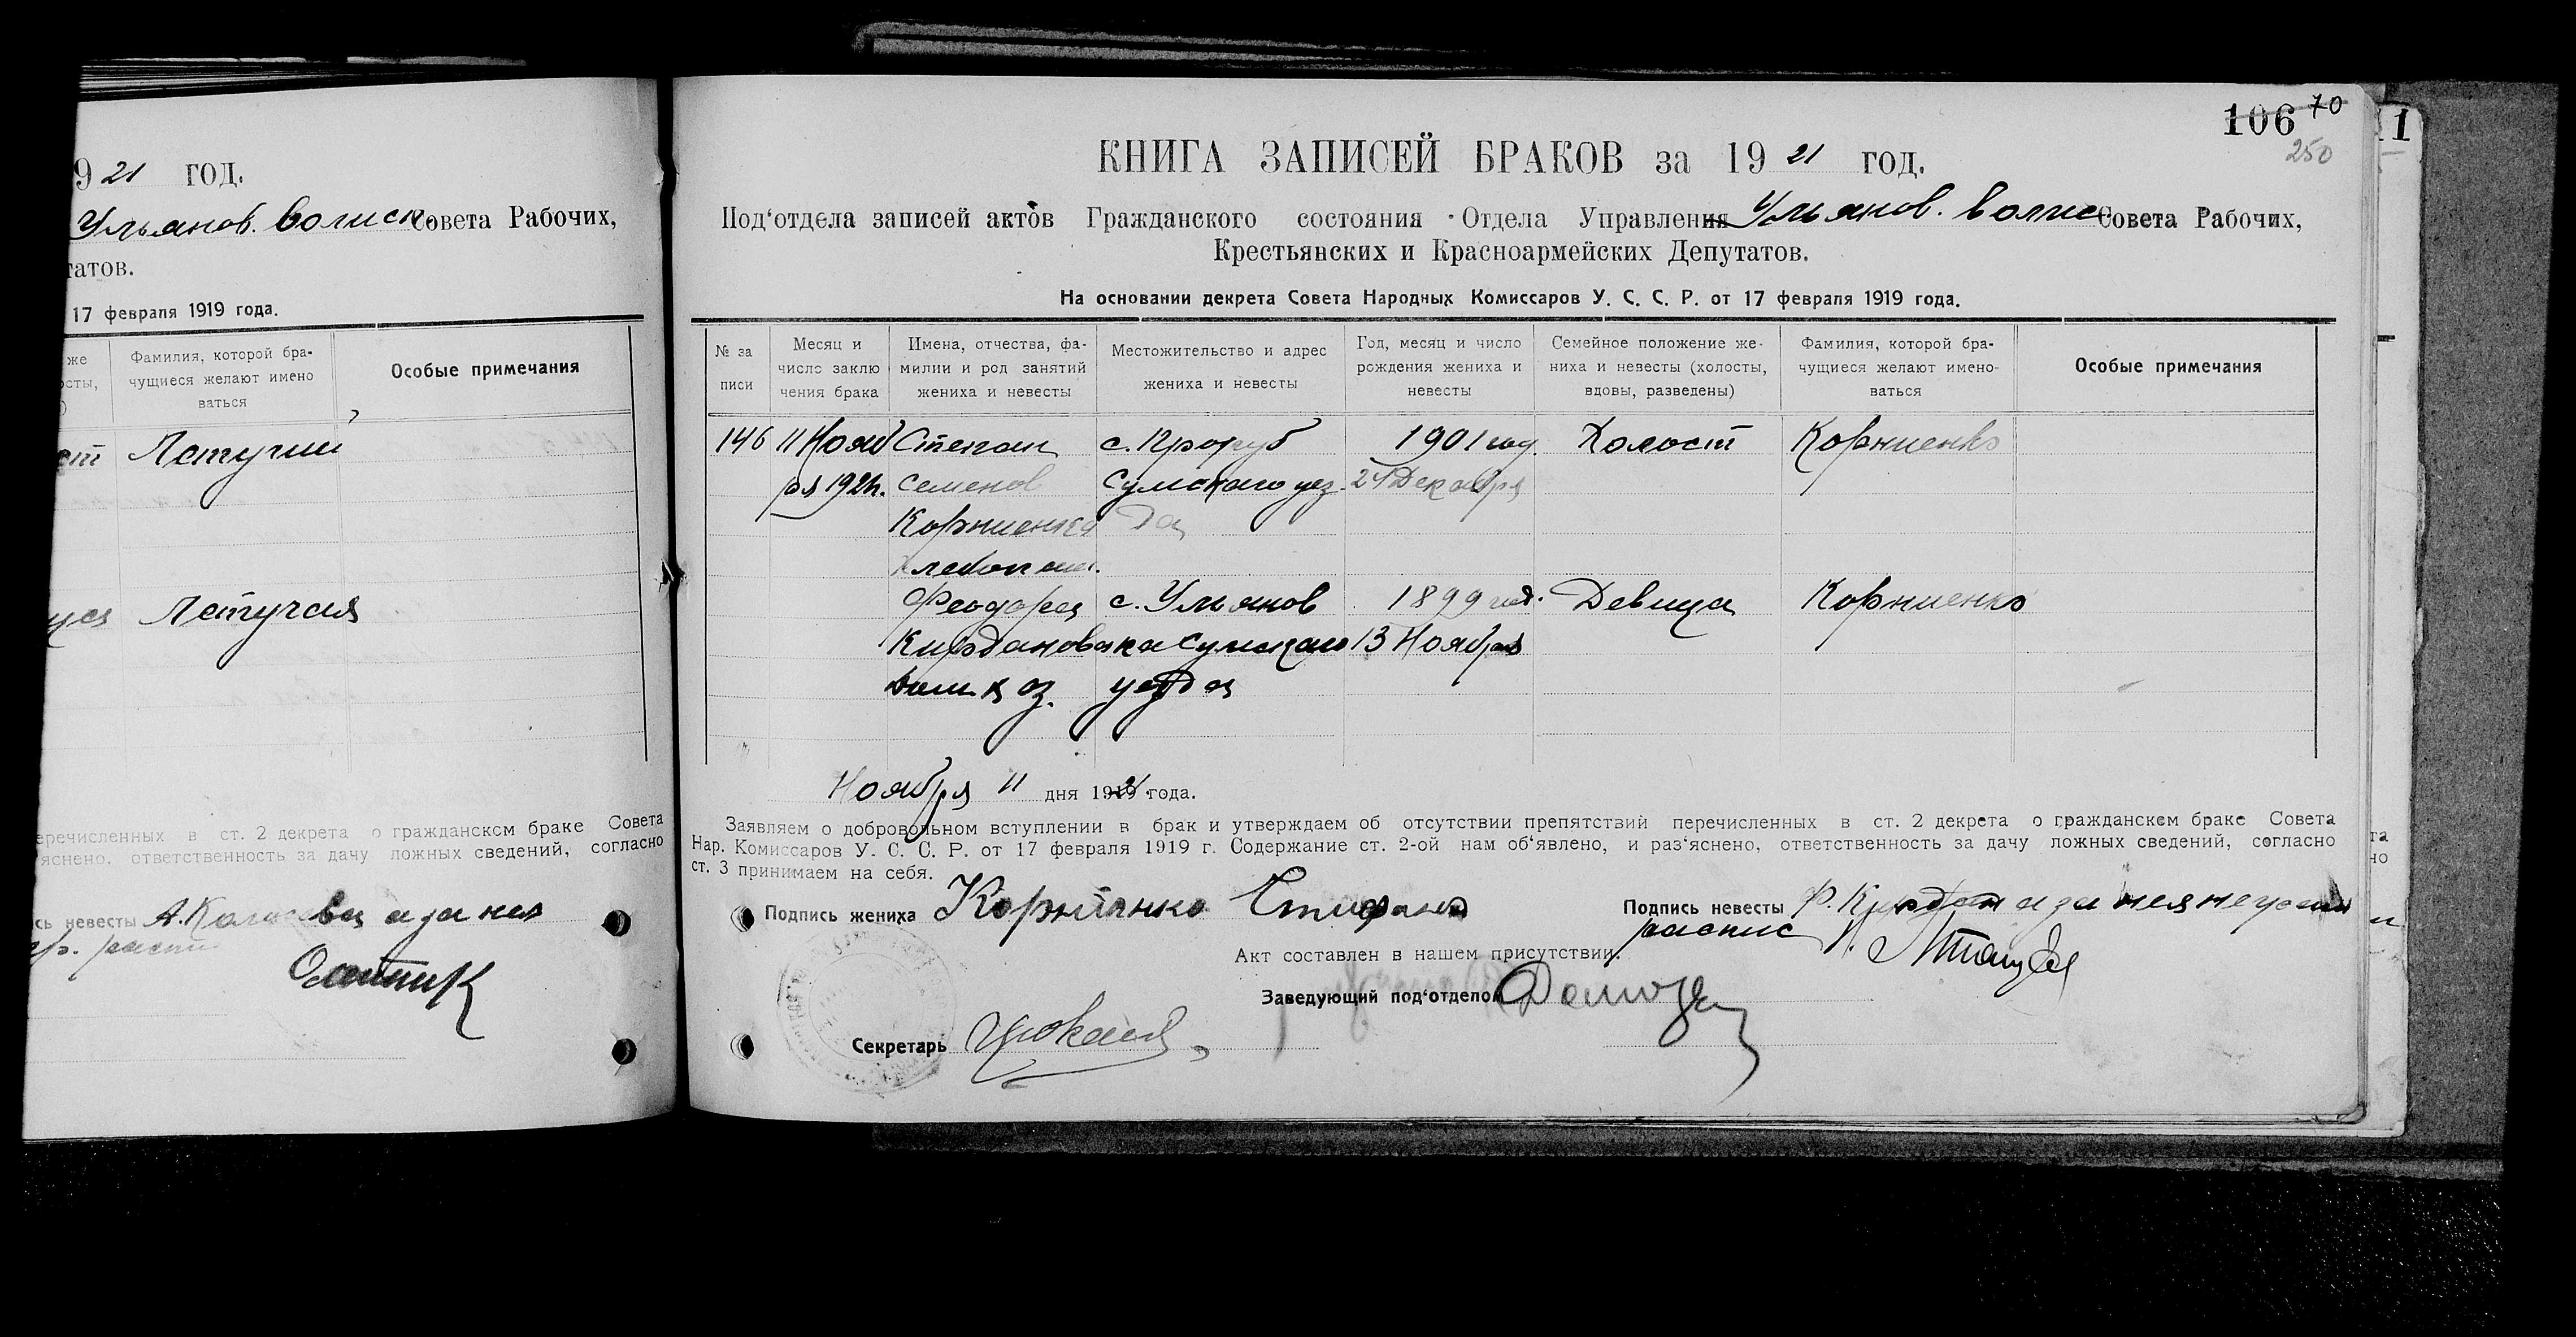 9 21 год.
Ульянов. волиск Совета Рабочих,
татов.
17 февраля 1919 года.
же
Фамилия, которой бра-
чущиеся желают имено
ваться
Особые примечания
Летучий
Летучая
еречисленных в ст. 2 декрета о гражданском браке Совета
яснено, ответственность за дачу ложных сведений, согласно
сь невесты А. а за нея
106 70
250
11
КНИГА ЗАПИСЕЙ БРАКОВ за 19 21 год.
Под‘отдела записей актов Гражданского состояния Отдела Управления Ульянов. волис Совета Рабочих,
Крестьянских и Красноармейских Депутатов.
На основании декрета Совета Народных Комиссаров У. С. С. Р. от 17 февраля 1919 года.
№ за
писи
Месяц и
число заклю
чения брака
Имена, отчества, фа-
милии и род занятий
жениха и невесты
Местожительство и адрес
жениха и невесты
Год, месяц и число
рождения жениха и
невесты
Семейное положение же-
ниха и невесты (холосты,
вдовы, разведены)
Фамилия, которой бра-
чущиеся желают имено-
ваться
Особые примечания
146 11 Нояб Степан с. Проруб 1901 год. Холост Корниенко
ря 1921г. Семенов Сумского уез 21 Декабря
Корниенко да
хлебопаш.
Феодора с. Ульянов 1899 год. Девица Корниенко
Кирдановска Сумскаго 13 Ноября
уезда
Ноября 11 дня 1921 года.
Заявляем о добровольном вступлении в брак и утверждаем об отсутствии препятствий перечисленных в ст. 2 декрета о гражданском браке Совета
Нар. Комиссаров У. С. С. Р. от 17 февраля 1919 г. Содержание ст. 2-ой нам об‘явлено, и раз‘яснено, ответственность за дачу ложных сведений, согласно
ст. 3 принимаем на себя.
Подпись жениха Корниенко
Подпись невесты Ф. а за нея неграм
распис
Акт составлен в нашем присутствии.
Заведующий под‘отделом
Секретарь